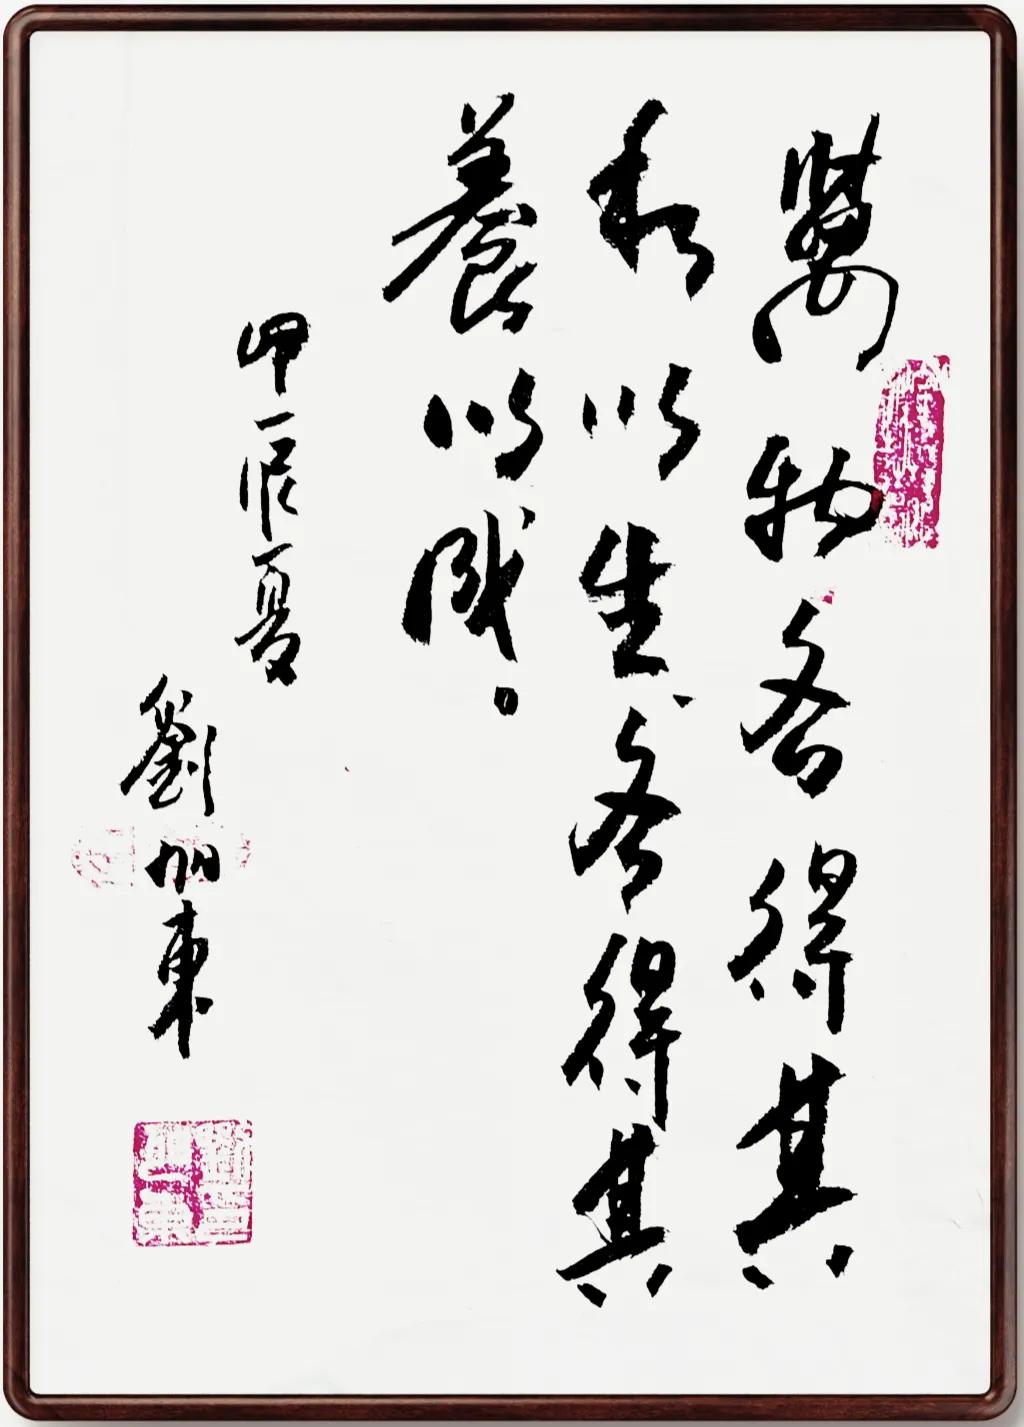 萬物各得其
和以生、各得其
養以成。
甲辰夏
劉加東